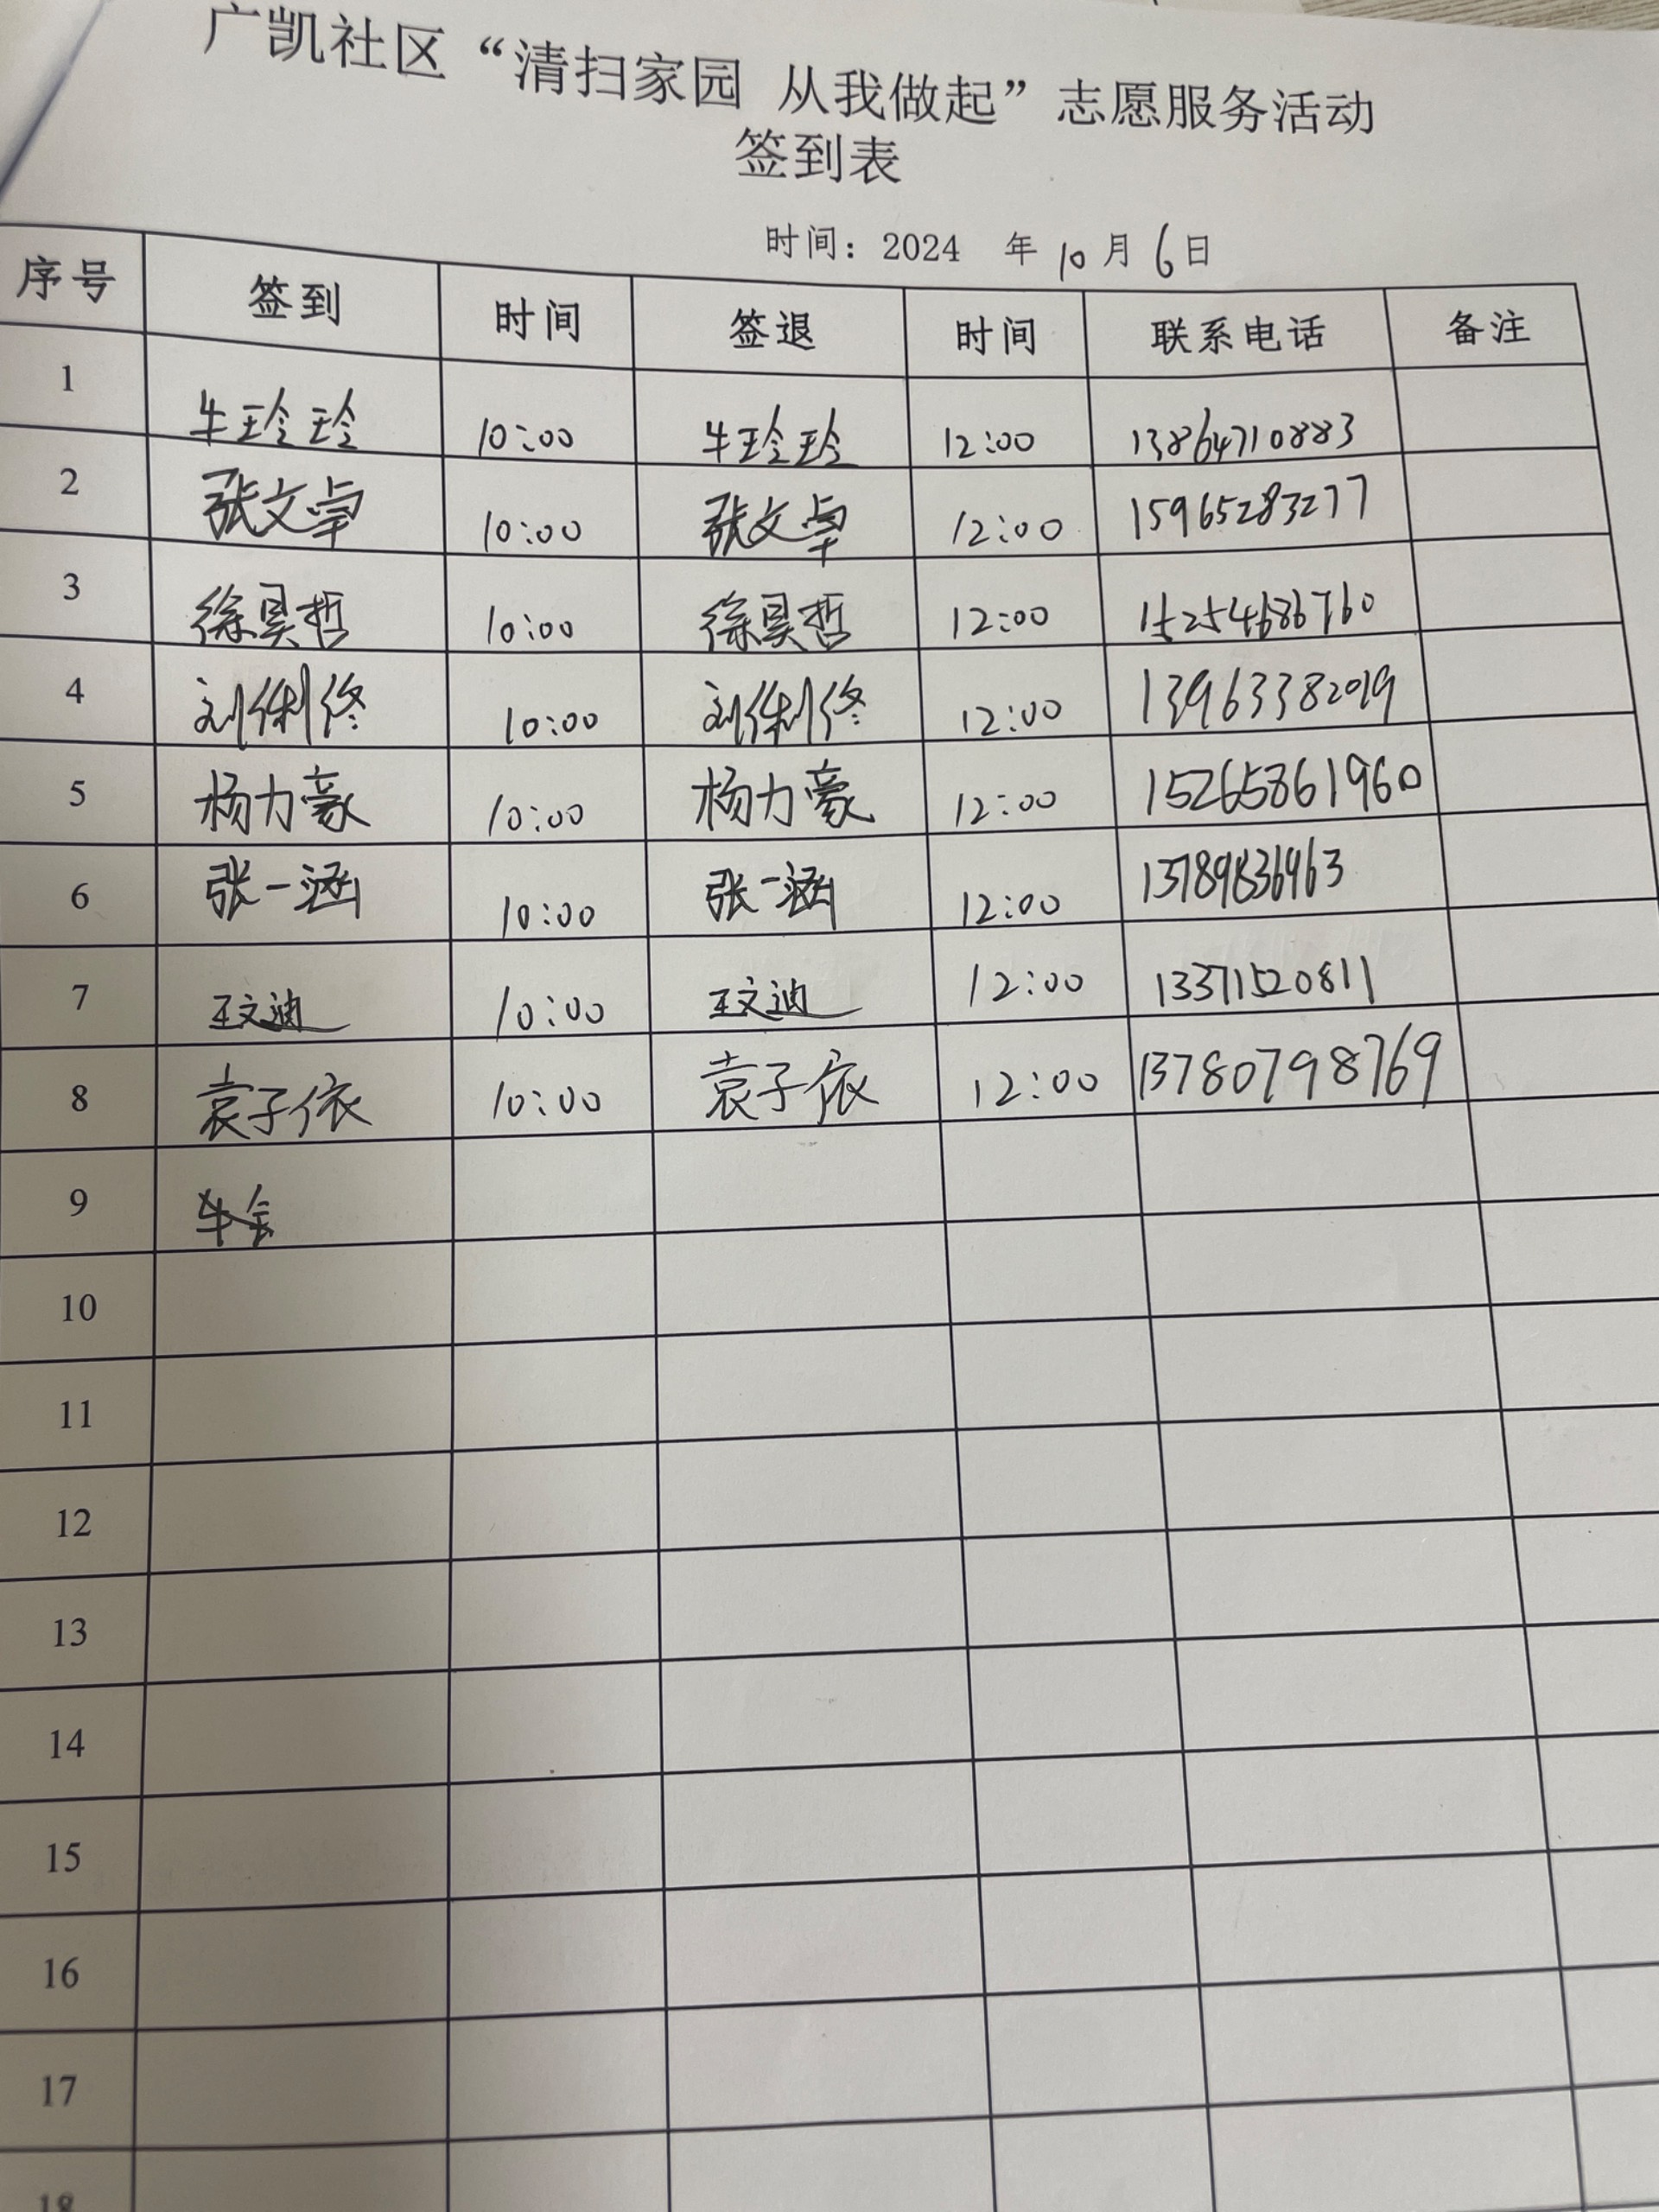 广凯社区“清扫家园 从我做起”志愿服务活动
签到表
时间：2024 年 10 月 6 日
序号 签到 时间 签退 时间 联系电话 备注
1 牛玲玲 10:00 牛玲玲 12:00 13864710883
2 张文卓 10:00 张文卓 12:00 15965283277
3 徐昊哲 10:00 徐昊哲 12:00 15254686760
4 刘 10:00 刘 12:00 13963382019
5 杨力豪 10:00 杨力豪 12:00 15265861960
6 张一涵 10:00 张一涵 12:00 13789836963
7 王文迪 10:00 王文迪 12:00 13371520811
8 袁子依 10:00 袁子依 12:00 13780798769
9
10
11
12
13
14
15
16
17
18